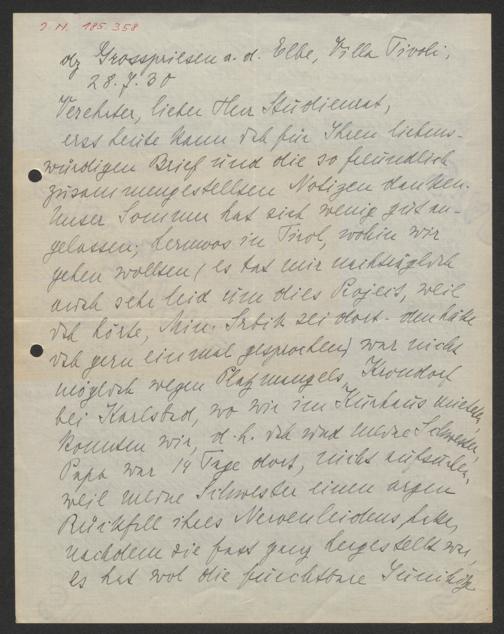 J. N. 185.358
dz Grosspriesen a. d. Elbe, Villa Tivoli,
28.7.30
Verehrter, lieber Herr Studienrat,
erst heute kann ich für Ihren liebens-
würdigen Brief und die so freundlich
zusammengestellten Notizen danken.
Unser Sommer hat sich wenig gut an-
gelassen; Lermoos in Tirol, wohin wir
gehen wollten (es tat mir nachträglich
auch sehr leid um dies Projekt, weil
ich hörte, Min. Srbik sei dort - den hätte
ich gern einmal gesprochen) war nicht
möglich wegen Platzmangels, Krondorf
bei Karlsbad, wo wir im Kurhaus
konnten wir, d. h. ich und meine Schwester,
Papa war 14 Tage dort, nicht aufsuchen,
weil meine Schwester einen argen
Rückfall ihres Nervenleidens hatte,
nachdem sie fast ganz hergestellt war,
es hat wol die furchtbare Junihitze